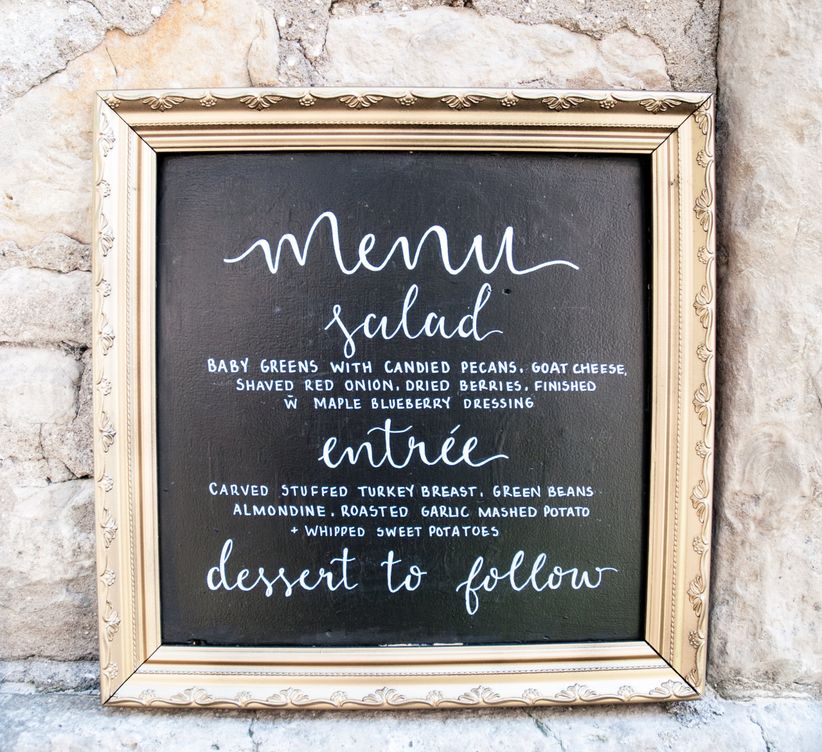 menu
salad
BABY GREENS WITH CANDIED PECANS, GOAT CHEESE,
SHAVED RED ONION, DRIED BERRIES, FINISHED
W̄ MAPLE BLUEBERRY DRESSING
entrée
CARVED STUFFED TURKEY BREAST, GREEN BEANS
ALMONDINE, ROASTED GARLIC MASHED POTATO
+ WHIPPED SWEET POTATOES
dessert to follow